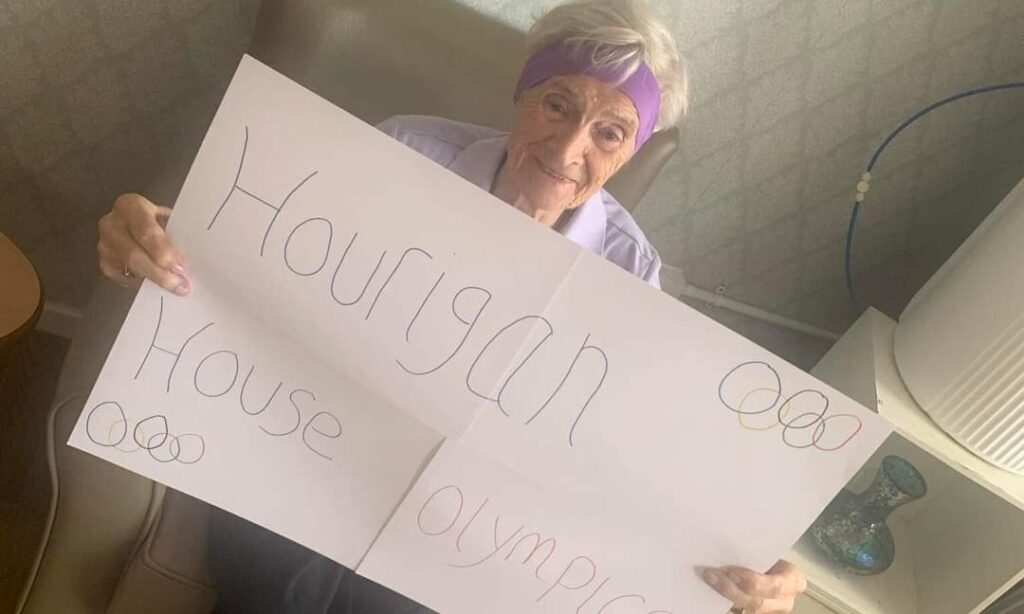 Hourigan
House
Olympics